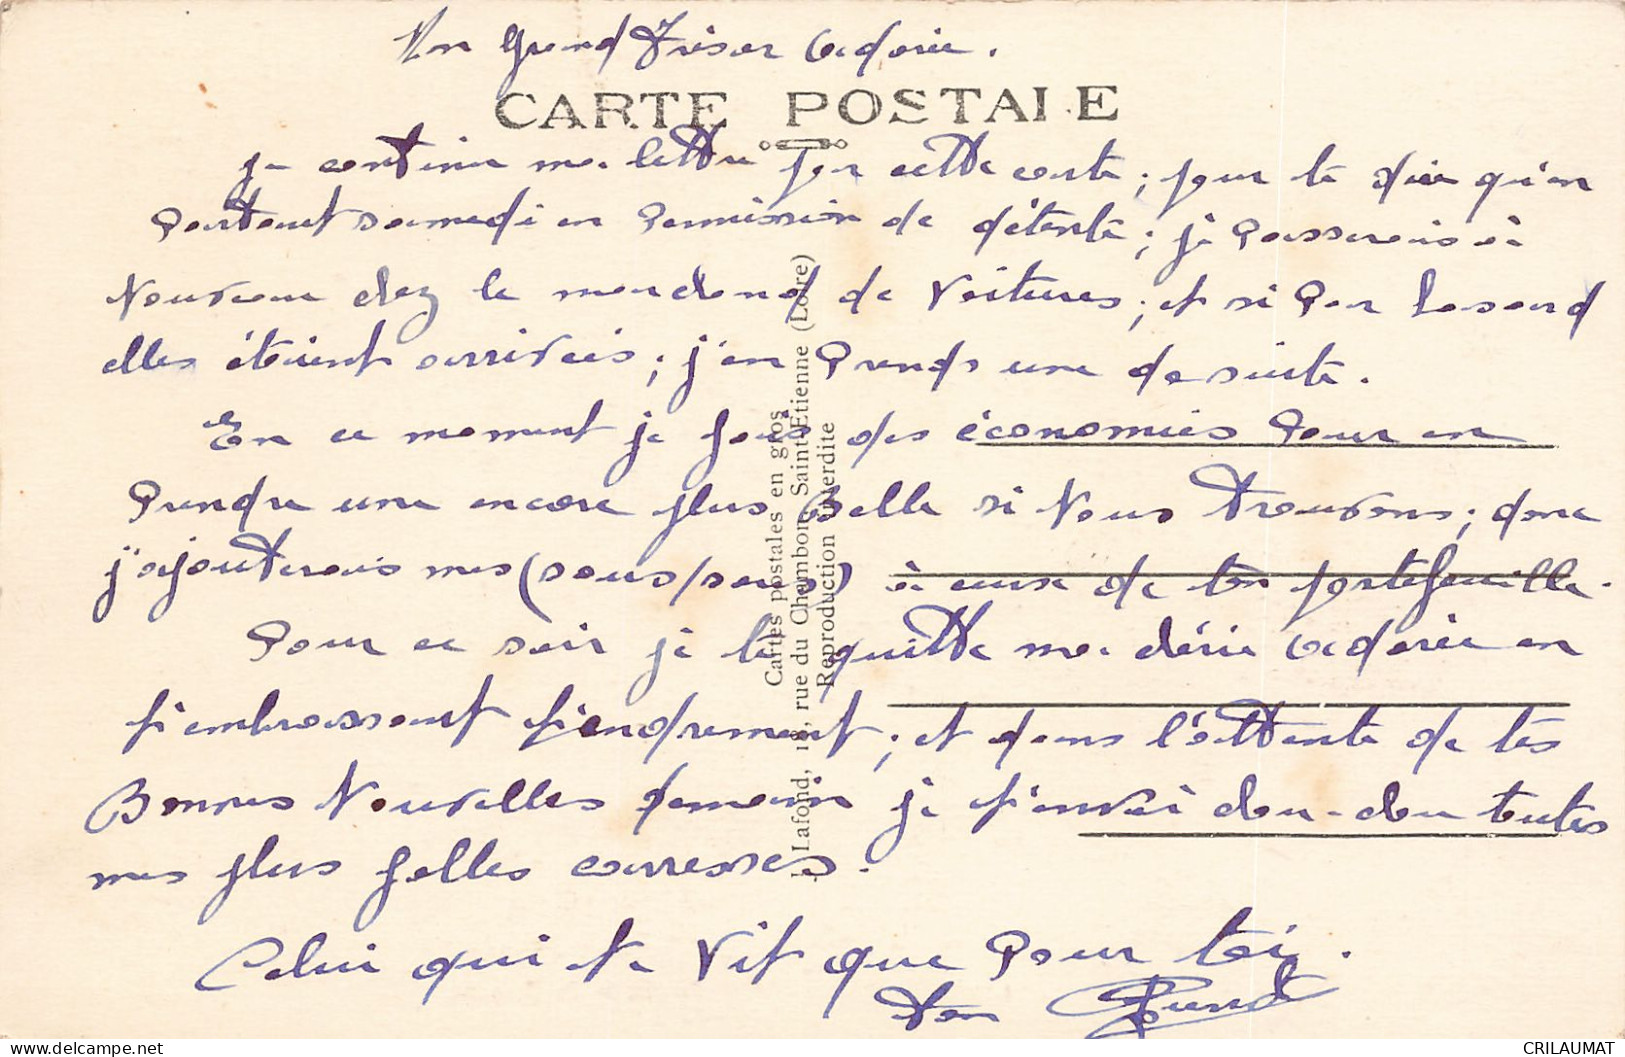 Mon grand Trésor Adorée.
CARTE POSTALE
je continue ma lettre sur cette carte; pour te dire qu'en
partant samedi en permission de détente; je passerais à
Nouveau chez le marchand de voitures; et si par hasard
elles étaient arrivées; j'en prends une de suite.
En ce moment je fais des économies pour en
prendre une encore plus Belle si Nous trouvons; donc
j'ajouterais mes (sous/sous) à ceux de ton portefeuille.
Pour ce soir je te quitte ma chérie adorée en
t'embrassant tendrement; et dans l'attente de tes
Bonnes Nouvelles demain je t'envoi chou-chou toutes
mes plus folles carresses.
Celui qui te vit que pour toi.
ton
Cartes postales en gros
Lafond, 18, rue du Chambon, Saint-Etienne (Loire)
Reproduction interdite
CRILAUMAT